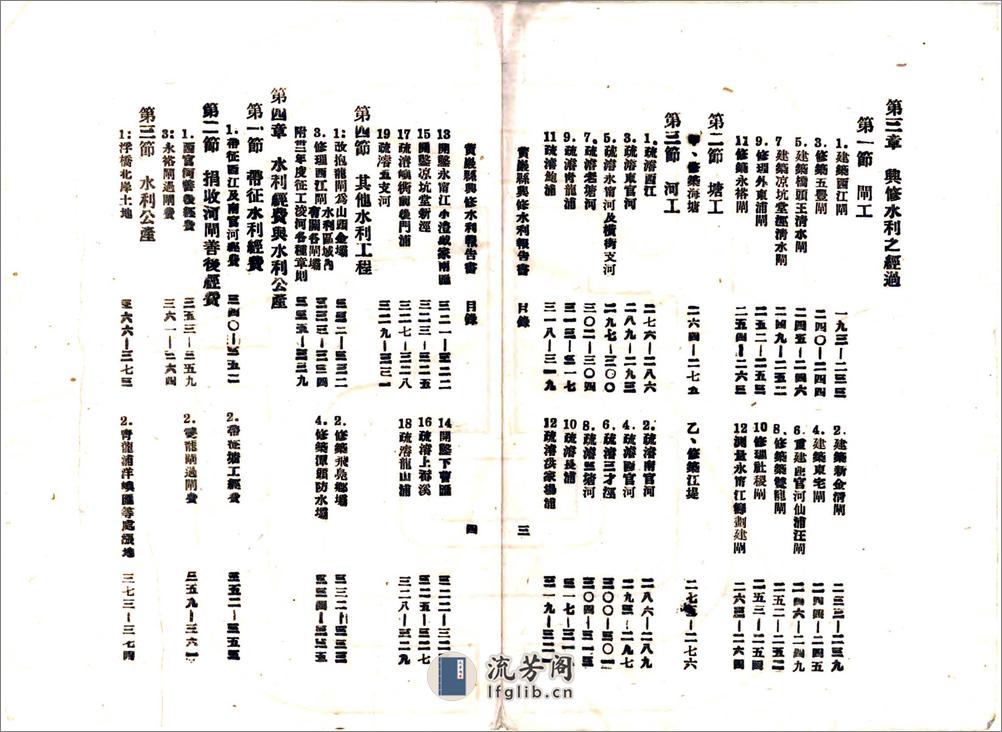 第三章 興修水利之經過
第一節 閘工
1. 建築西江閘 一九三—二三三
2. 建築新金清閘 二三三—二三九
3. 修築五豐閘 二四〇—二四四
4. 建築東宅閘 二四四—二四五
5. 建築橋頭王清水閘 二四五—二四六
6. 重建西官河仙浦汪閘 二四六—二四九
7 建築凉坑堂徑清水閘 二四九—二五二
8. 修築築雙龍閘 二五二—二五二
9. 修理外東浦閘 二五二—二五三
10 修理社稷閘 二五三—二五四
11 修築永裕閘 二五四—二六三
12 測量永甯江籌劃建閘 二六三—二六四
第二節 塘工
甲、修築海塘 二六四—二七五
乙、修築江堤 二七五—二七六
第三節 河工
1. 疏濬西江 二七六—二八六
2. 疏濬南官河 二八六—二八九
3. 疏濬東官河 二八九—二九三
4. 疏濬西官河 二九三—二九七
5. 疏濬永甯河及橫街支河 二九七—三〇〇
6. 疏濬三才涇 三〇〇—三〇一
7. 疏濬老塘河 三〇二—三〇四
8. 疏濬三塘河 三〇四—三一三
9. 疏濬青龍浦 三一三—三一七
10 疏濬長浦 三一七—三一八
11 疏濬鮑浦 三一八—三一九
12 疏濬洪家場浦 三一九—三二一
黃巖縣興修水利報告書 目錄 三
黃巖縣興修水利報告書 目錄 四
13 開鑿永甯江小澧戴家兩匯 三二一—三二二
14 開鑿下曹匯 三二二—三二三
15 開鑿凉坑堂新涇 三二三—三二五
16 疏濬上蓀溪 三二五—三二七
17 疏濬嶼街前後門浦 三二七—三二八
18 疏濬龍山浦 三二八—三二九
19 疏濬五支河 三二九—三三一
第四節 其他水利工程
1: 改抱龍閘爲山頭金壩 三三二—三三二
2. 修築飛鳧鄉壩 三三二—三三三
3. 修理西江閘水利區域內有關各閘壩 三三三—三三四
4. 修築潭頭防水壩 三三四—三三五
附三年度征工浚河各種章則 三三五—三三九
第四章 水利經費與水利公產
第一節 帶征水利經費
1. 帶征西江及南官河經費 三四〇—三五二
2. 帶征塘工經費 三五二—三五三
第二節 捐收河閘善後經費
1. 西官河善後經費 三五三—三五九
2. 雙龍閘過閘費 三五九—三六一
3: 永裕閘過閘費 三六一—三六四
第三節 水利公產
1: 浮橋北岸土地 三六六—三七三
2. 青龍浦洋嶼匯等處漲地 三七三—三七四
流芳阁
lfglib.cn